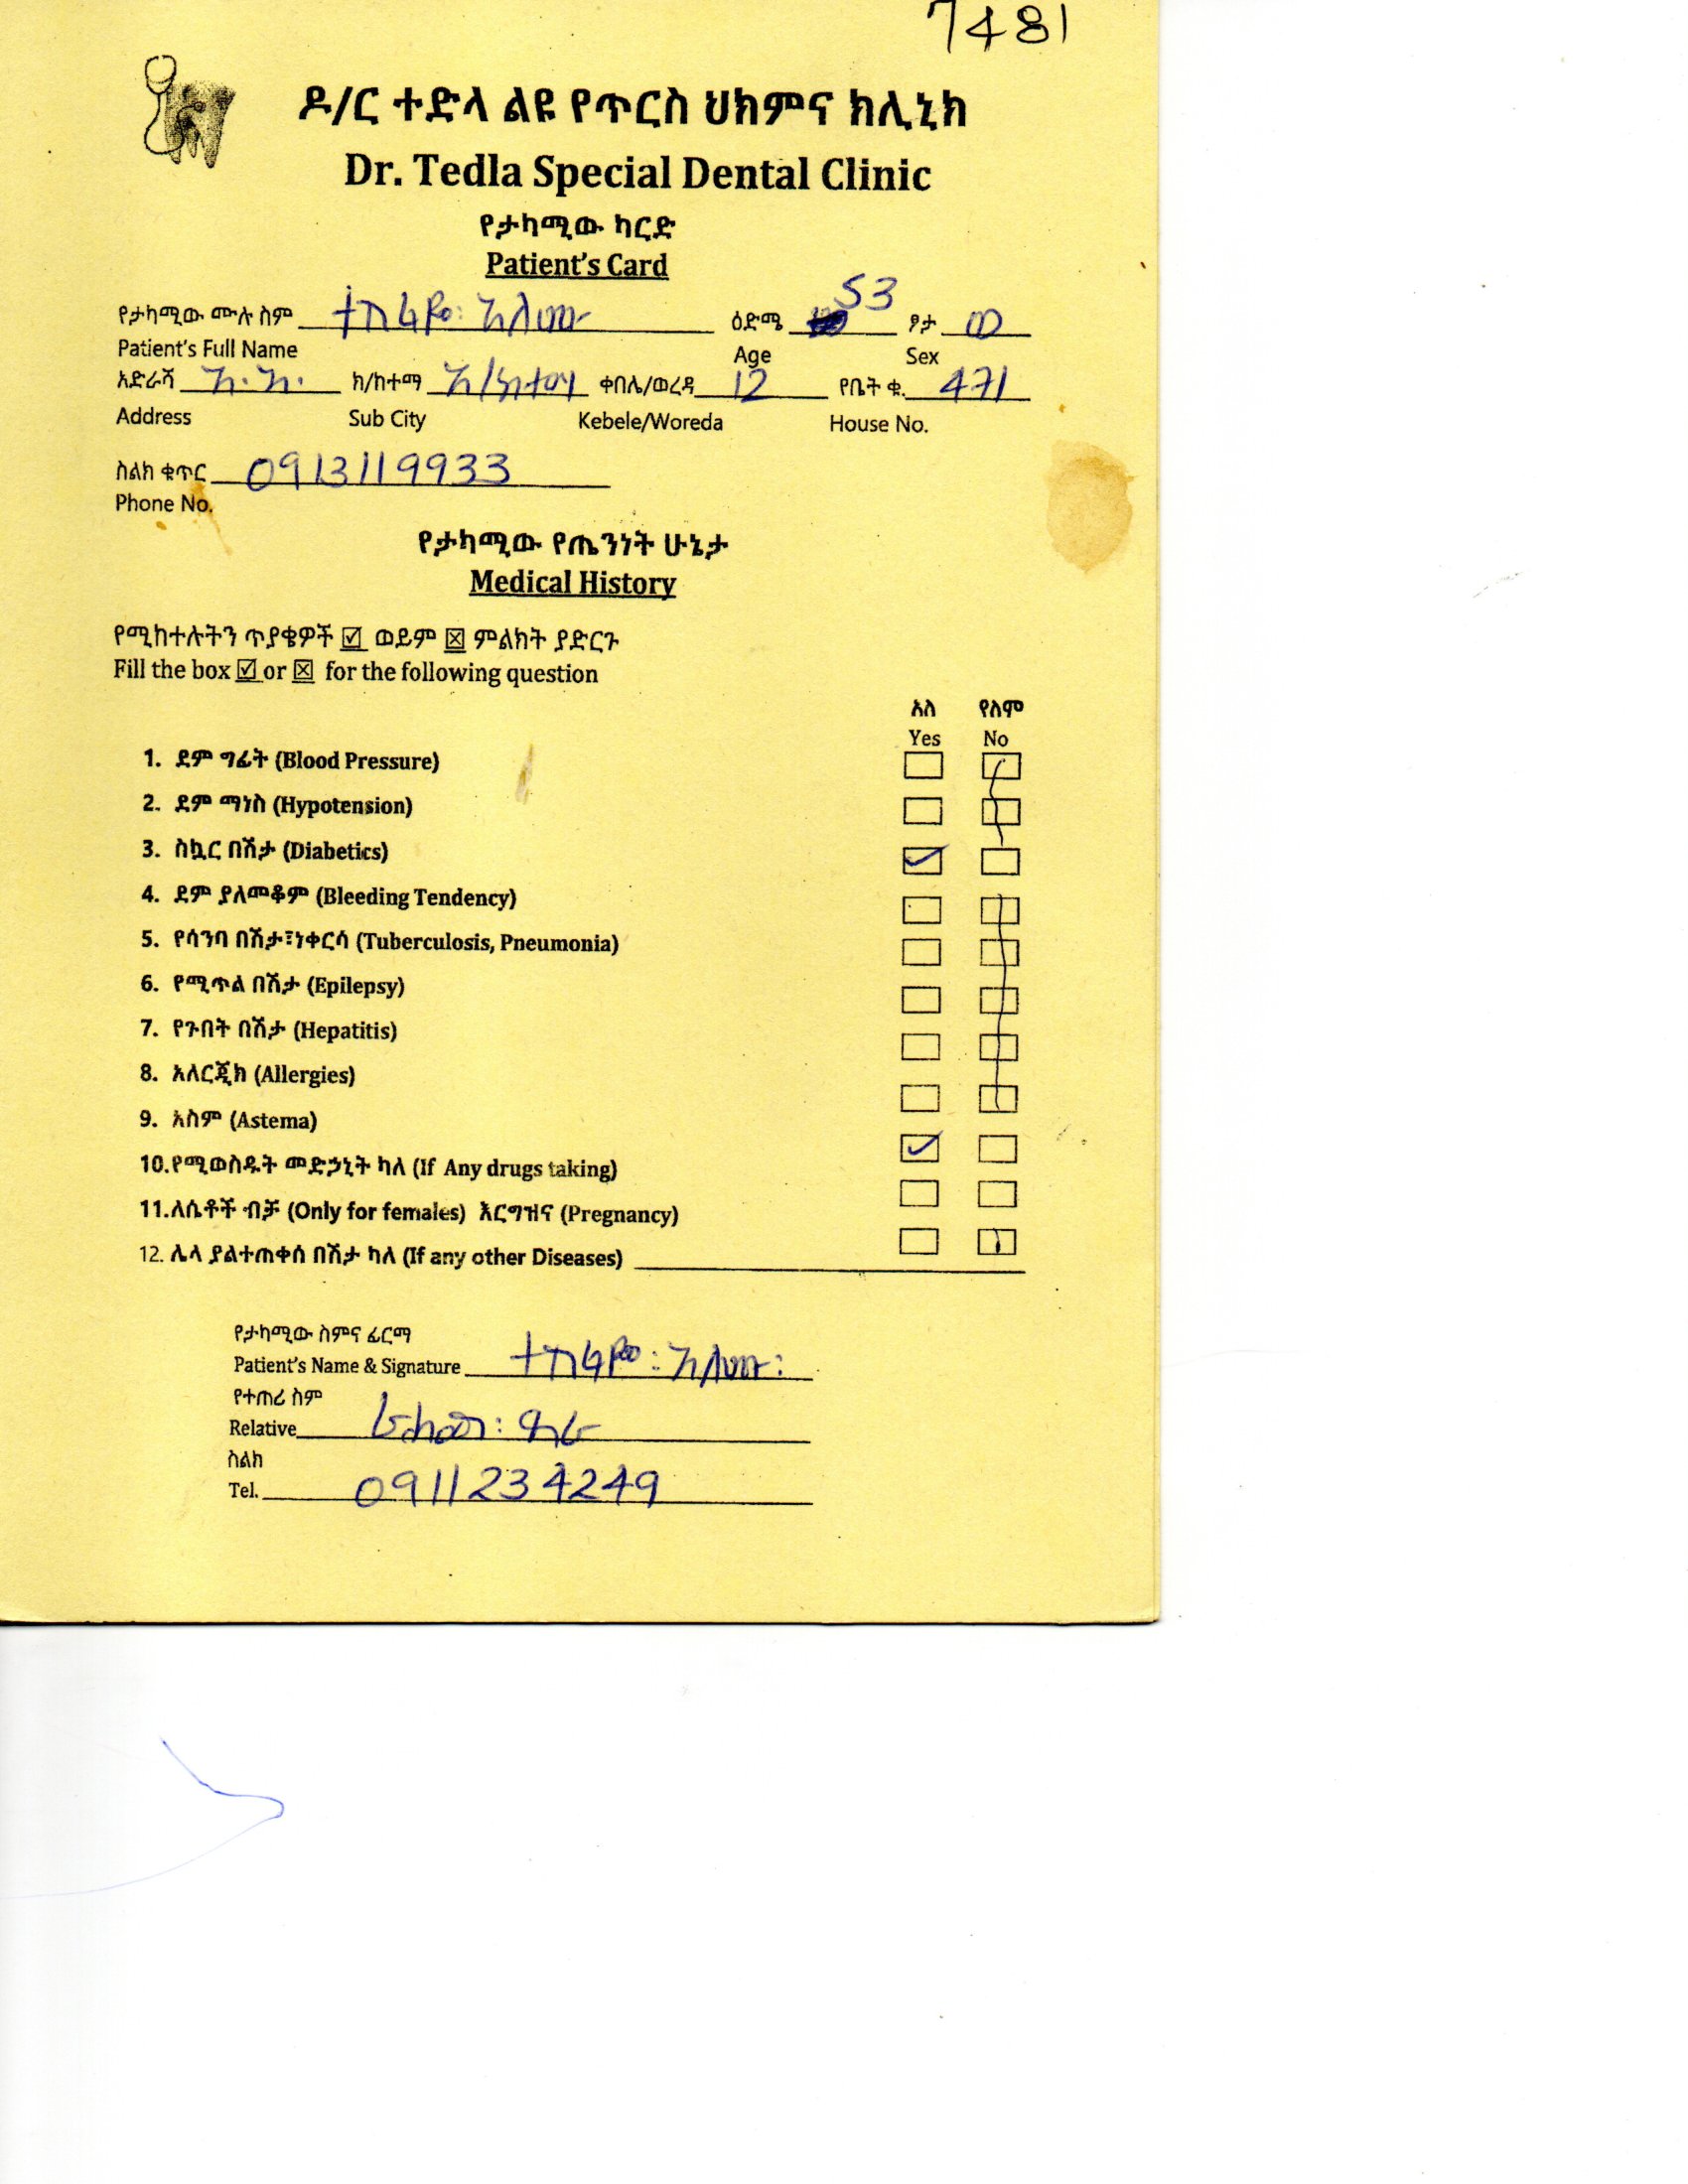 7481
ዶ/ር ተድላ ልዩ የጥርስ ህክምና ክሊኒክ
Dr. Tedla Special Dental Clinic
የታካሚው ካርድ
Patient's Card
የታካሚው ሙሉ ስም ተስፋዬ፡ አለሙ ዕድሜ 53 ፆታ ወ
Patient's Full Name Age Sex
አድራሻ አ.አ. ክ/ከተማ ቀበሌ/ወረዳ 12 የቤት ቁ. 471
Address Sub City Kebele/Woreda House No.
ስልክ ቁጥር 0913119933
Phone No.
የታካሚው የጤንነት ሁኔታ
Medical History
የሚከተሉትን ጥያቄዎች ☑ ወይም ☒ ምልክት ያድርጉ
Fill the box ☑ or ☒ for the following question
አለ የለም
Yes No
1. ደም ግፊት (Blood Pressure)
2. ደም ማነስ (Hypotension)
3. ስኳር በሽታ (Diabetics)
4. ደም ያለመቆም (Bleeding Tendency)
5. የሳንባ በሽታ፣ነቀርሳ (Tuberculosis, Pneumonia)
6. የሚጥል በሽታ (Epilepsy)
7. የጉበት በሽታ (Hepatitis)
8. አለርጂክ (Allergies)
9. አስም (Astema)
10.የሚወስዱት መድኃኒት ካለ (If Any drugs taking)
11.ለሴቶች ብቻ (Only for females) እርግዝና (Pregnancy)
12. ሌላ ያልተጠቀሰ በሽታ ካለ (If any other Diseases)
የታካሚው ስምና ፊርማ
Patient's Name & Signature ተስፋዬ፡ አለሙ፡
የተጠሪ ስም
Relative
ስልክ
Tel. 0911234249